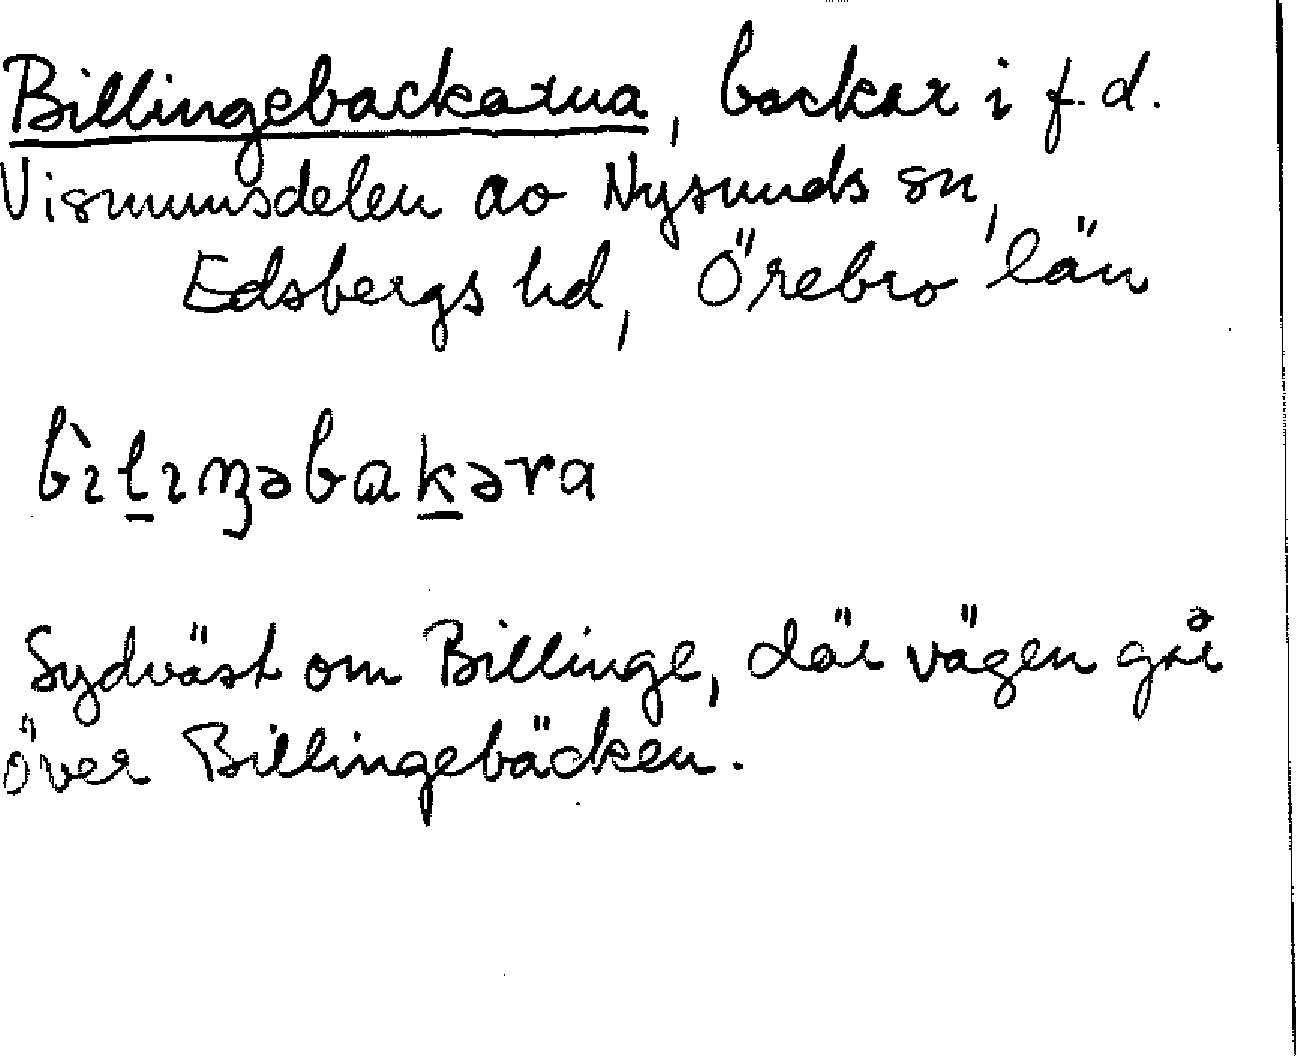 Billingebackarna, backar i f.d.
Visnumsdelen av Nysunds sn,
Edsbergs hd, Örebro län
bɪ̀l̠ɪŋəbak̠əra
Sydväst om Billinge, där vägen går
över Billingebäcken.